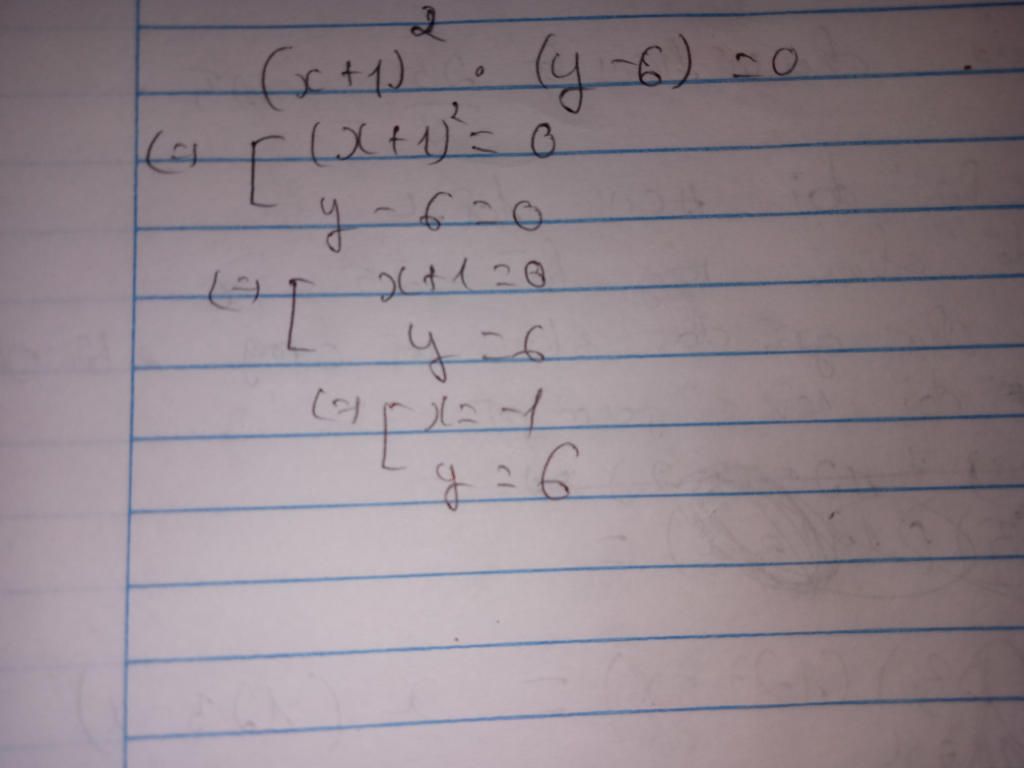 (x+1)² . (y-6) = 0
(=) [ (x+1)² = 0
y - 6 = 0
(=) [ x+1 = 0
y = 6
(=) [ x = -1
y = 6